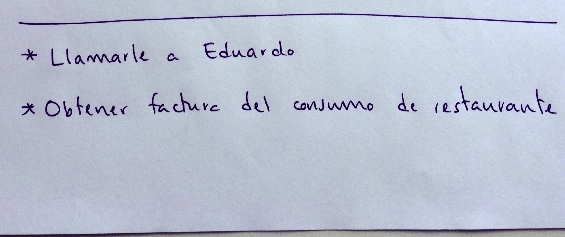 * Llamarle a Eduardo
* Obtener factura del consumo de restaurante